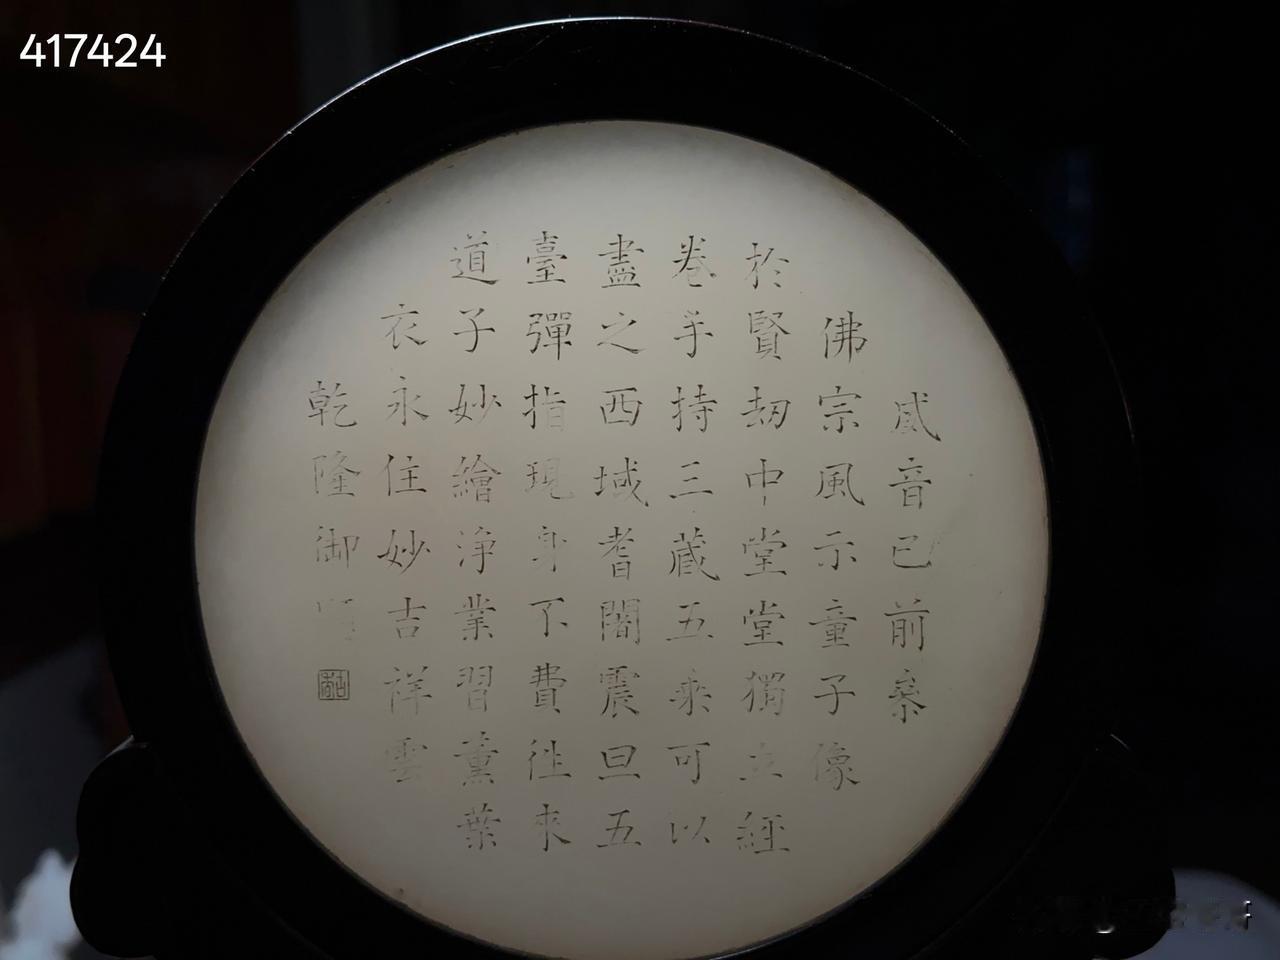 417424
威音已前參
佛宗風示童子像
於賢劫中堂堂獨立經
卷手持三藏五乘可以
盡之西域耆闍震旦五
臺彈指現身不費往來
道子妙繪淨業習薰葉
衣永住妙吉祥雲
乾隆御